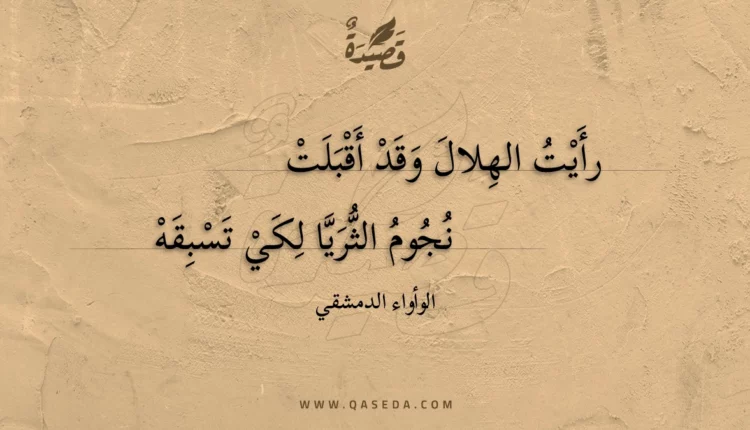 قَصِيدَةٌ
رأَيْتُ الهِلالَ وَقَدْ أَقْبَلَتْ
نُجُومُ الثُّرَيَّا لِكَيْ تَسْبِقَهْ
الوأواء الدمشقي
WWW.QASEDA.COM